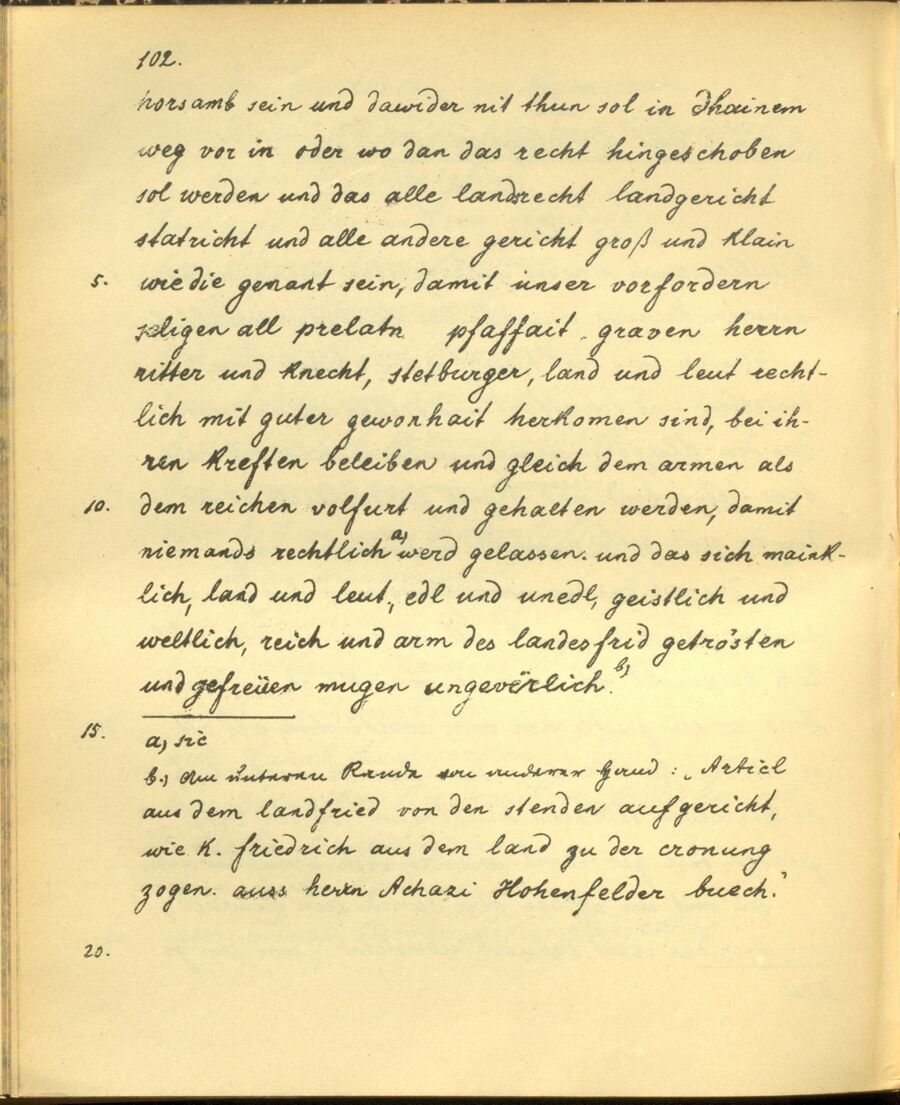 102.
horsamb sein und dawider nit thun sol in khainem
weg vor in oder wo dan das recht hingeschoben
sol werden und das alle landsrecht landgericht
statricht und alle andere gericht groß und klain
5. wie die genant sein, damit unser vorfordern
seligen all prelatn pfaffait graven herrn
ritter und knecht, stetburger, land und leut recht-
lich mit guter gewonhait herkomen sind, bei ih-
ren kreften beleiben und gleich dem armen als
10. dem reichen volfurt und gehalten werden, damit
niemands rechtlich a) werd gelassen. und das sich maink-
lich, land und leut, edl und unedl, geistlich und
weltlich, reich und arm des landesfrid getrösten
und gefreüen mugen ungevërlich. b)
15. a) sic
b) Am unteren Rande von anderer Hand: „Articl
aus dem landfried von den stenden aufgericht,
wie K. friedrich aus dem land zu der cronung
zogen. auss herrn Achazi Hohenfelder buech."
20.